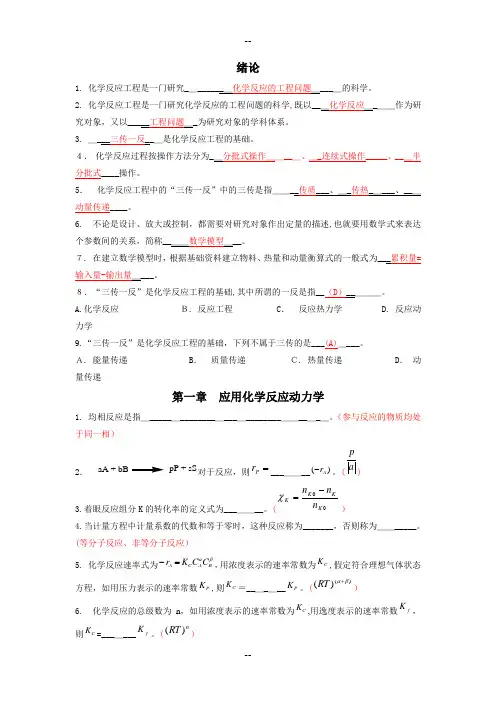 --
绪论
1. 化学反应工程是一门研究______化学反应的工程问题______的科学。
2. 化学反应工程是一门研究化学反应的工程问题的科学,既以____化学反应_____作为研
究对象，又以_____工程问题___为研究对象的学科体系。
3. _____三传一反____是化学反应工程的基础。
4．化学反应过程按操作方法分为___分批式操作______、__连续式操作_____、___半
分批式____操作。
5．化学反应工程中的“三传一反”中的三传是指______传质___、___传热_____、____
动量传递____。
6. 不论是设计、放大或控制，都需要对研究对象作出定量的描述,也就要用数学式来表达
个参数间的关系，简称______数学模型____。
7. 在建立数学模型时，根据基础资料建立物料、热量和动量衡算式的一般式为___累积量=
输入量-输出量_____。
8．“三传一反”是化学反应工程的基础,其中所谓的一反是指__（D）_______。
A.化学反应 B．反应工程 C．反应热力学 D. 反应动
力学
9.“三传一反”是化学反应工程的基础，下列不属于三传的是___(A)_____。
A．能量传递 B．质量传递 C．热量传递 D．动
量传递
第一章 应用化学反应动力学
1. 均相反应是指___________________________。（参与反应的物质均处
于同一相）
2． aA + bB → pP + sS 对于反应，则 r_P = ______(−r_A)。( p/a )
3.着眼反应组分K的转化率的定义式为________。( χ_K = (n_K0 − n_K)/n_K0 )
4.当计量方程中计量系数的代数和等于零时，这种反应称为_______，否则称为_______。
(等分子反应、非等分子反应）
5. 化学反应速率式为 −r_A = K_C C_A^α C_B^β ,用浓度表示的速率常数为 K_C ,假定符合理想气体状态
方程，如用压力表示的速率常数 K_P ,则 K_C =_______K_P 。( (RT)^(α+β) )
6. 化学反应的总级数为 n，如用浓度表示的速率常数为 K_C ,用逸度表示的速率常数 K_f ，
则 K_C =______K_f 。( (RT)^n )
--